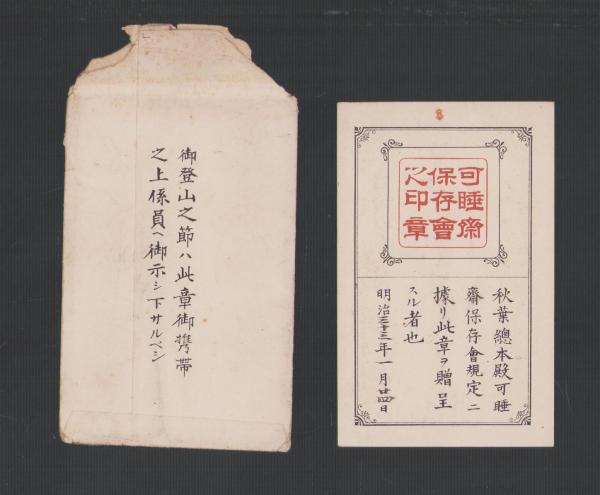 御登山之節ハ此章御携帯
之上係員ヘ御示シ下サルベシ
可睡斎
保存會
之印章
秋葉總本殿可睡
齋保存會規定ニ
據リ此章ヲ贈呈
スル者也
明治三十三年一月廿四日